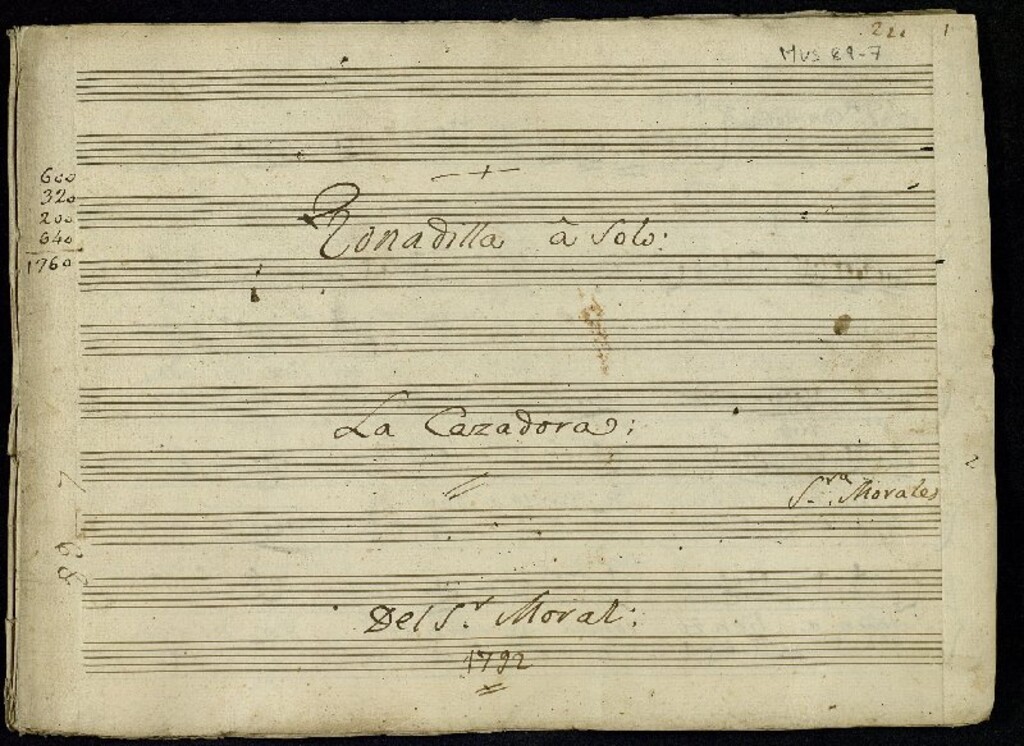 22. 1
Mus 89-7
600
320
200
640
1760
Tonadilla â Solo:
La Cazadora:
2
S.ra Morales
89-7
Del S.r Moral:
1792